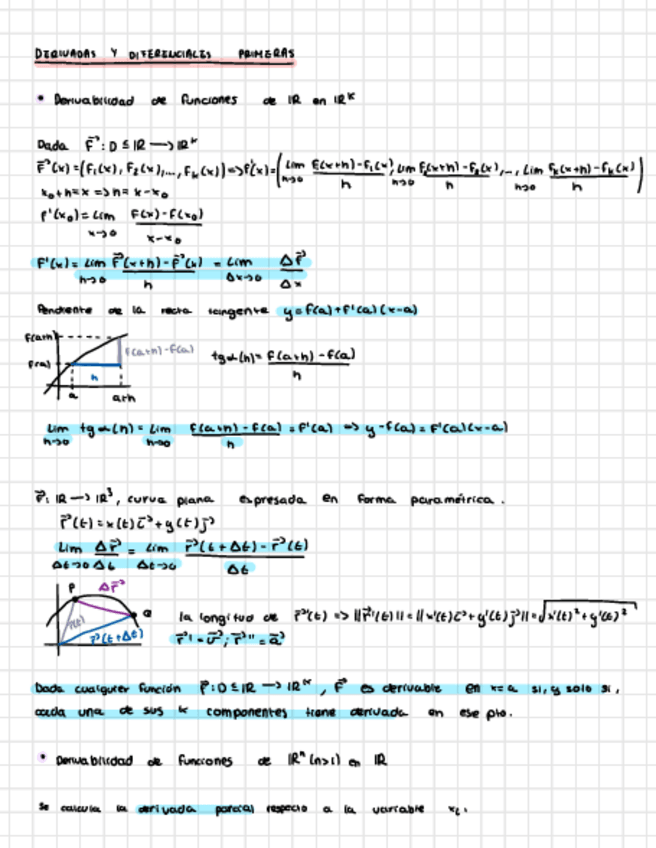 DERIVADAS Y DIFERENCIALES PRIMERAS
• Derivabilidad de funciones de IR en IR^k
Dada F⃗: D ⊆ IR → IR^k
F⃗(x) = (F₁(x), F₂(x), ..., F_k(x)) => f'(x) = (lim h→0 F₁(x+h) - F₁(x) / h, lim h→0 F₂(x+h) - F₂(x) / h, ..., lim h→0 F_k(x+h) - F_k(x) / h)
x₀ + h = x => h = x - x₀
f'(x₀) = lim x→0 F(x) - F(x₀) / x - x₀
F'(x) = lim h→0 F⃗(x+h) - F⃗(x) / h = lim Δx→0 Δf⃗ / Δx
Pendiente de la recta tangente y = f(a) + f'(a)(x-a)
f(a+h)
f(a+h) - f(a)
f(a)
h
a a+h
tg α(h) = f(a+h) - f(a) / h
lim h→0 tg α(h) = lim h→0 f(a+h) - f(a) / h = f'(a) => y - f(a) = f'(a)(x-a)
r⃗: IR → IR³, curva plana expresada en forma paramétrica.
r⃗(t) = x(t)i⃗ + y(t)j⃗
lim Δt→0 Δr⃗ / Δt = lim Δt→0 r⃗(t+Δt) - r⃗(t) / Δt
P Δr⃗
Q
r(t)
r⃗(t+Δt)
la longitud de r⃗'(t) => ||r⃗'(t)|| = ||x'(t)i⃗ + y'(t)j⃗|| = √x'(t)² + y'(t)²
r⃗' = v⃗; r⃗'' = a⃗
Dada cualquier función F⃗: D ⊆ IR → IR^k, F⃗ es derivable en x=a si, y solo si,
cada una de sus k componentes tiene derivada en ese pto.
• Derivabilidad de funciones de IRⁿ (n>1) en IR
Se calcula la derivada parcial respecto a la variable xᵢ.